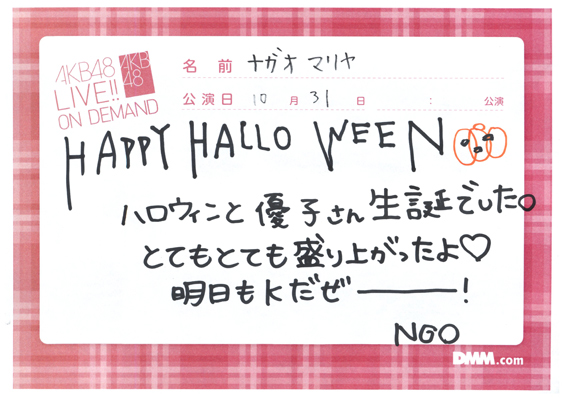 AKB48
LIVE!!
ON DEMAND
AKB
48
名前 ナガオ マリヤ
公演日 10月31日 : 公演
HAPPY HALLO WEEN
ハロウィンと優子さん生誕でした。
とてもとても盛り上がったよ♡
明日もKだぜ————!
NGO
DMM.com